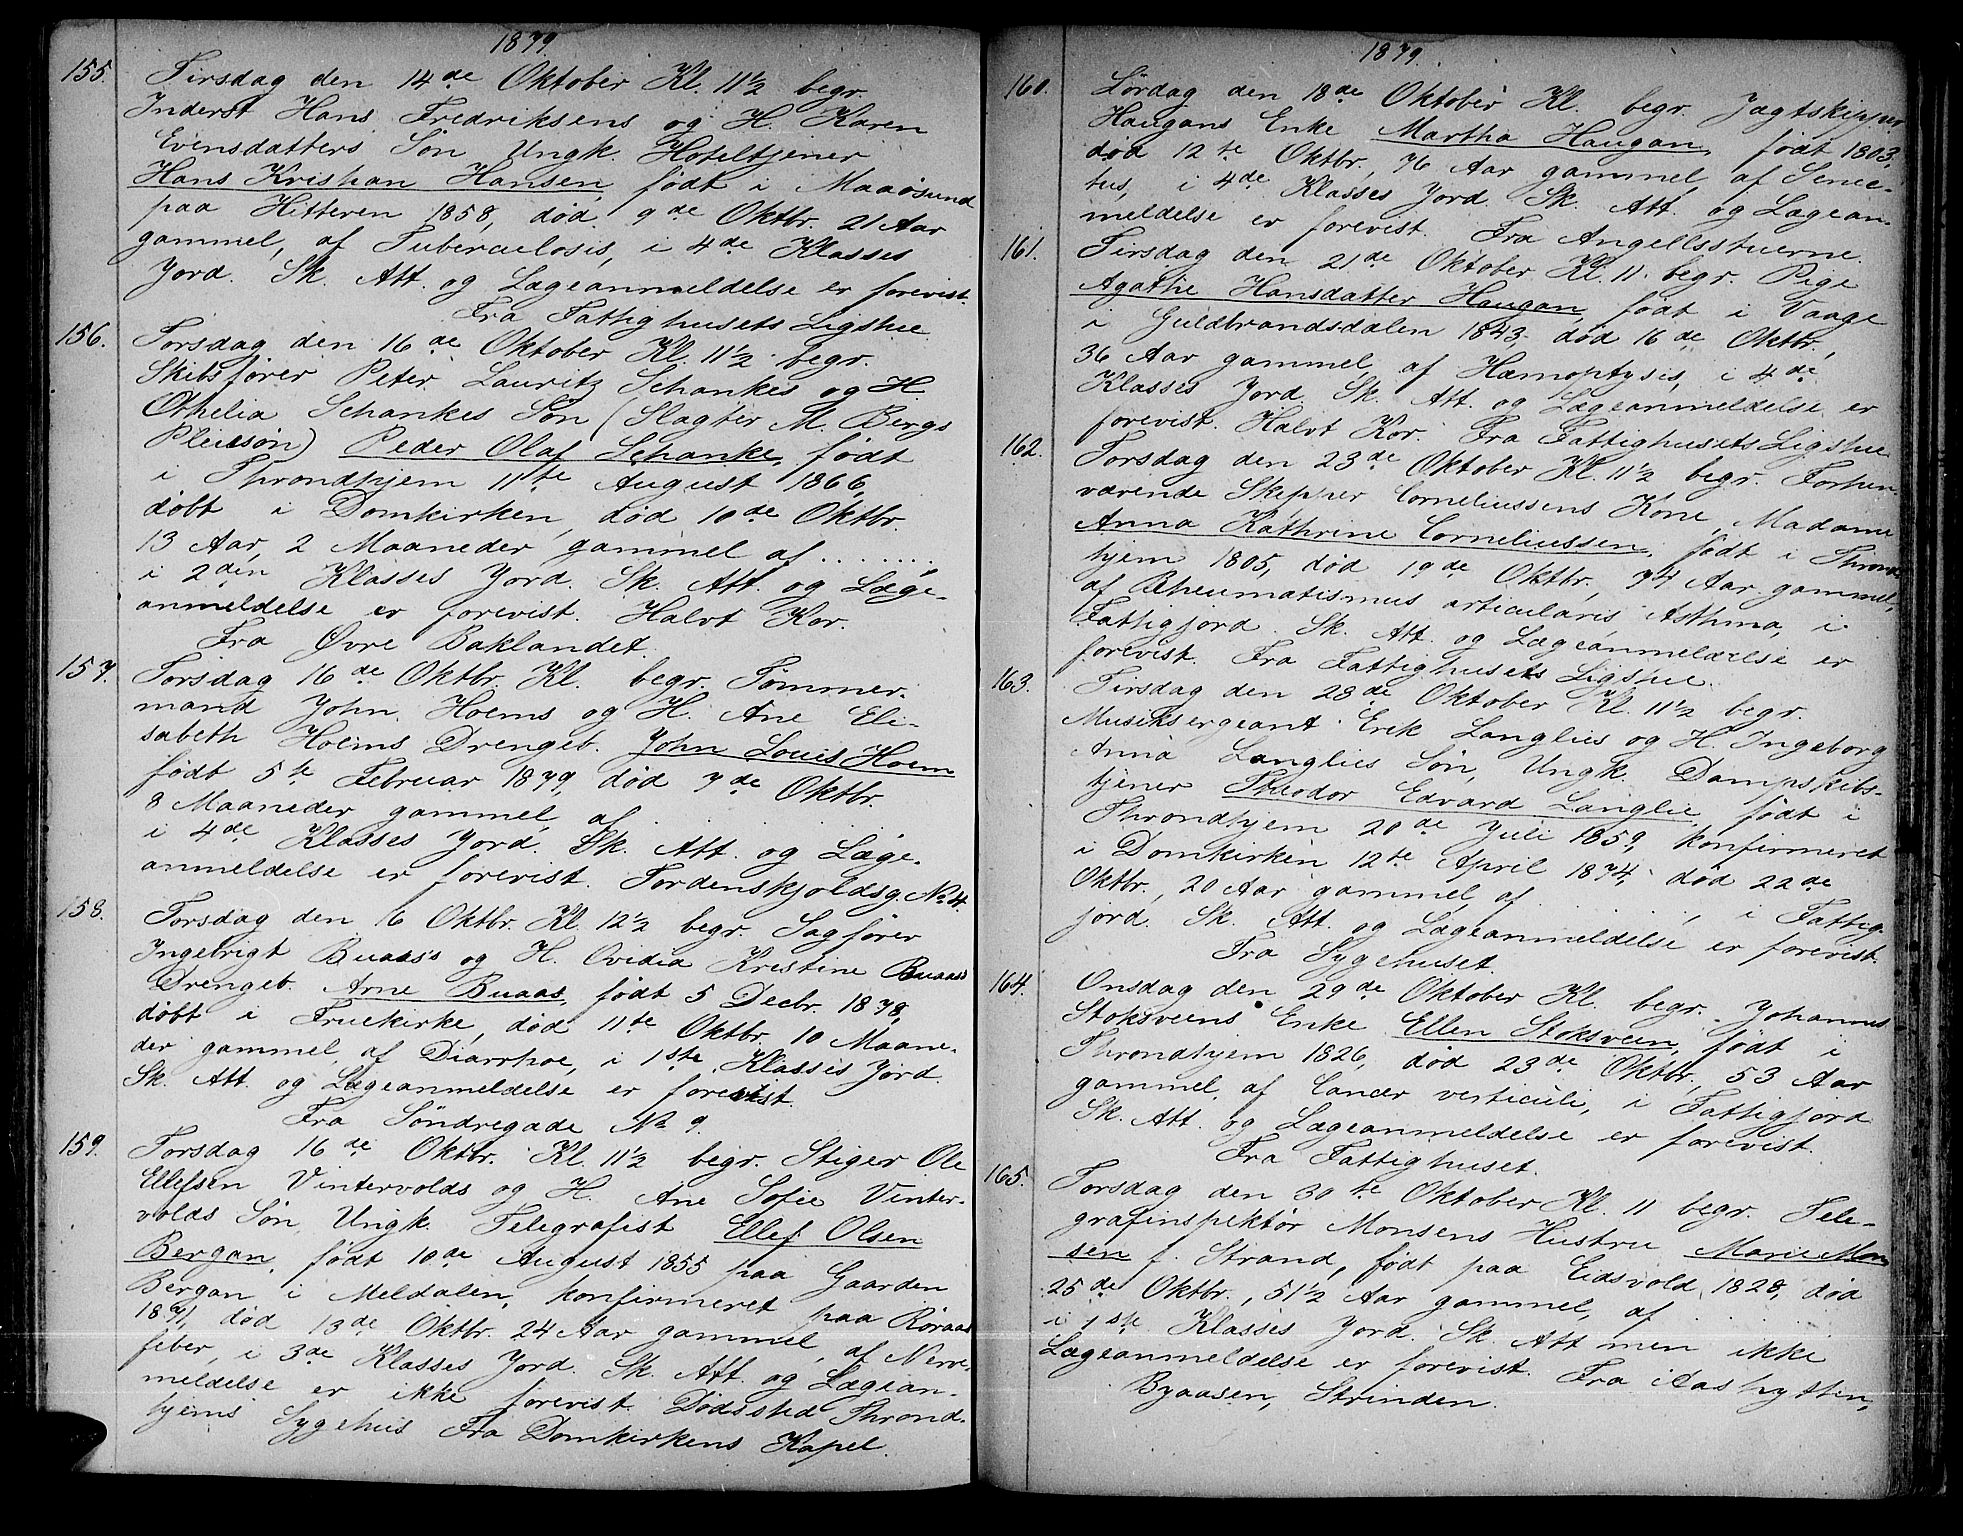 1879.
155. Tirsdag den 14de Oktober Kl. 11½ begr.
Inderst Hans Fredriksens og H. Karen
Evensdatters Søn Ungk. Hoteltjener
Hans Kristian Hansen, født i Maaøsund
paa Hitteren 1858, død 9de Oktbr. 21 Aar
gammel, af Tuberculosis, i 4de Klasses
Jord. Sk. Att. og Lægeanmeldelse er forevist.
Fra Fattighusets Ligstue
156. Torsdag den 16de Oktober Kl. 11½ begr.
Skibsfører Peter Lauritz Schankes og H.
Othelia Schankes Søn (Slagter M. Bergs
Pleiesøn) Peder Olaf Schanke, født
i Throndhjem 11te August 1866,
døbt i Domkirken, død 10de Oktbr.
13 Aar, 2 Maaneder gammel af ........
i 2den Klasses Jord. Sk. Att. og Læge-
anmeldelse er forevist. Halvt Kor.
Fra Øvre Baklandet.
157. Torsdag 16de Oktbr. Kl. begr. Tømmer-
mand John Hoems og H. Ane Eli-
sabeth Hoems Drengeb. John Louis Hoem
født 5te Februar 1879, død 7de Oktbr.
8 Maaneder gammel, af . . . . . .
i 4de Klasses Jord. Sk. Att. og Læge-
anmeldelse er forevist. Tordenskjoldsg. No 4.
158. Torsdag den 16 Oktbr. Kl. 12½ begr. Sagfører
Ingebrigt Buaas's og H. Ovidia Kristine Buaas
Drengeb. Arne Buaas, født 5 Decbr. 1878,
døbt i Fruekirke, død 11te Oktbr. 10 Maane-
der gammel, af Diarrhoe, i 1ste Klasses Jord.
Sk. Att. og Lægeanmeldelse er forevist.
Fra Søndregade No 9.
159. Torsdag 16de Oktbr. Kl. 11½ begr. Stiger Ole
Ellefsen Vintervolds og H. Ane Sofie Vinter-
volds Søn, Ungk. Telegrafist Ellef Olsen
Bergan, født 10de August 1855 paa Gaarden
Bergan i Meldalen, konfirmeret paa Røraas
1871, død 13de Oktbr. 24 Aar gammel, af Nerve-
feber, i 3de Klasses Jord. Sk. Att. og Lægean-
meldelse er ikke forevist. Dødssted Thrond-
hjems Sygehus Fra Domkirkens Kapel.
1879.
160. Lørdag den 18de Oktober Kl. begr. Jægtskipper
Haugans Enke Martha Haugan, født 1803,
død 12te Oktbr, 76 Aar gammel, af Senec-
tus, i 4de Klasses Jord. Sk. Att. og Lægean-
meldelse er forevist. Fra Angellsstuerne.
161. Tirsdag den 21de Oktober Kl. 11. begr. Pige
Agathe Hansdatter Haugan født i Vaage
i Guldbrandsdalen 1843, død 16de Oktbr.,
36 Aar gammel, af Hæmoptysis, i 4de
Klasses Jord. Sk. Att. og Lægeanmeldelse er
forevist. Halvt Kor. Fra Fattighusets Ligstue
162. Torsdag den 23de Oktober Kl. 11½ begr. Forhen-
værende Skipper Corneliussens Kone, Madame
Anna Kathrine Corneliussen, født i Thrond-
hjem 1805, død 19de Oktbr, 74 Aar gammel,
af Rheumatismus articularis Asthma, i
Fattigjord. Sk. Att. og Lægeanmeldelse er
forevist. Fra Fattighusets Ligstue.
163. Tirsdag den 28de Oktober Kl 11½ begr.
Musiksergeant Erik Langlies og H. Ingeborg
Anna Langlies Søn, Ungk. Dampskibs-
tjener Theodor Edvard Langlie, født i
Throndhjem 20de Juli 1859, konfirmeret
i Domkirken 12te April 1874, død 22de
Oktbr., 20 Aar gammel, af . . . . . . , i Fattig-
jord. Sk. Att. og Lægeanmeldelse er forevist.
Fra Sygehuset.
164. Onsdag den 29de Oktober Kl. begr. Johannes
Stoksveens Enke Ellen Stoksveen, født i
Throndhjem 1826, død 23de Oktbr, 53 Aar
gammel, af Cancer verticuli, i Fattigjord
Sk. Att. og Lægeanmeldelse er forevist.
Fra Fattighuset.
165. Torsdag den 30te Oktober Kl. 11 begr. Tele-
grafinspektør Monsens Hustru, Marie Mon-
sen f. Strand, født paa Eidsvold 1828, død
25de Oktbr., 51½ Aar gammel, af . . .
i 1ste Klasses Jord. Sk. Att men ikke
Lægeanmeldelse er forevist. Fra Aashytten,
Byaasen, Strinden.